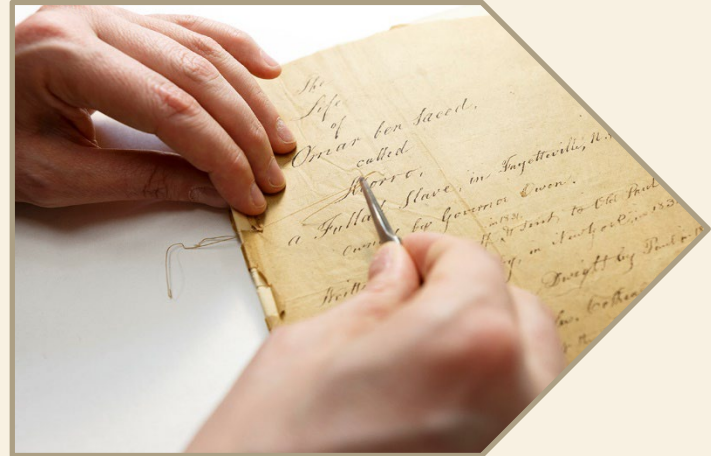 The
Life
of
Omar ben Saeed,
called
Morro,
a Fullah Slave, in Fayetteville, N.
owned by Governor Owen.
in 1831.
& sent to Old Paul
in New York, in 183
Dwight by Paul